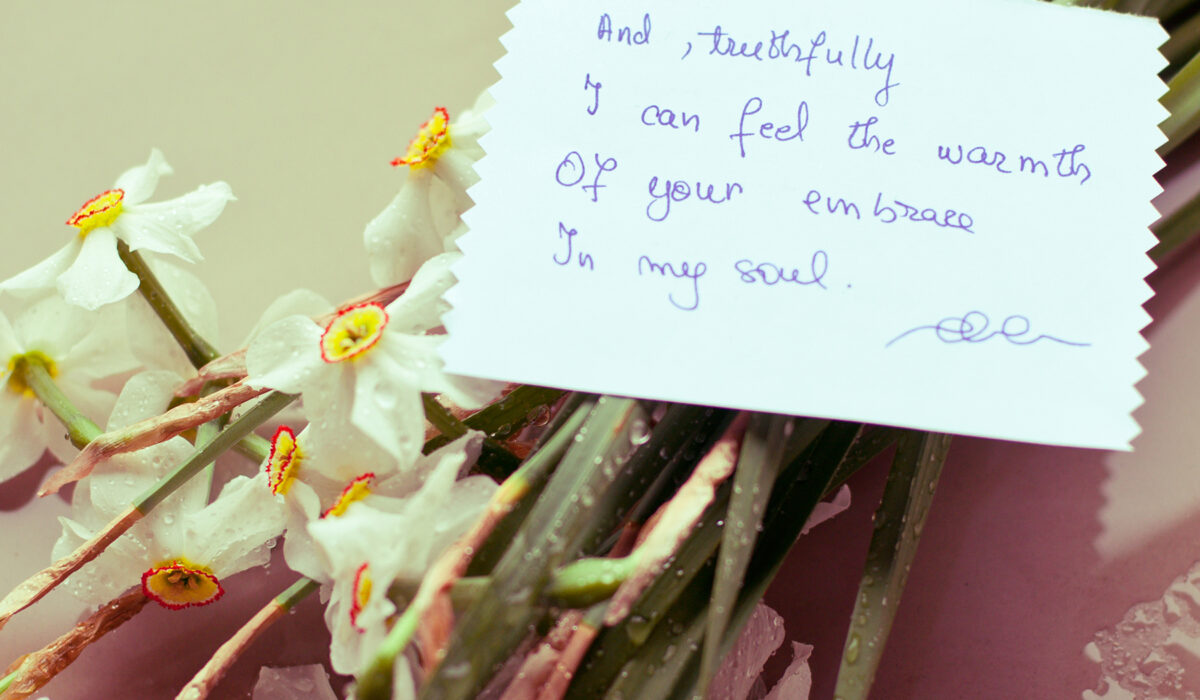 And ,truthfully
I can feel the warmth
Of your embrace
In my soul.